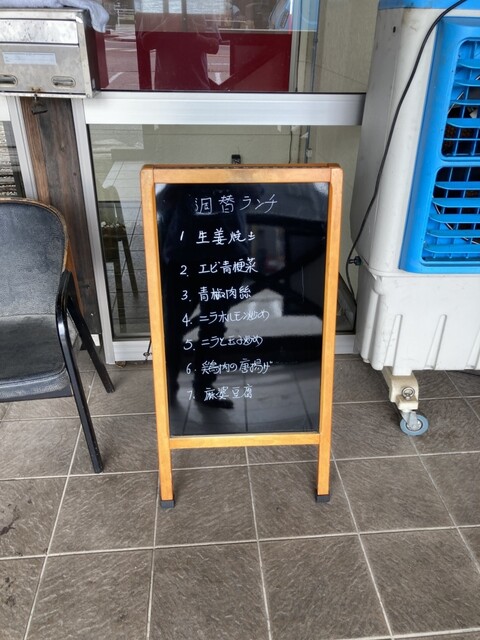 週替ランチ
1 生姜焼き
2. エビ青梗菜
3. 青椒肉絲
4. ニラホルモン炒め
5. ニラと玉子炒め
6. 鶏肉の唐揚げ
7. 麻婆豆腐